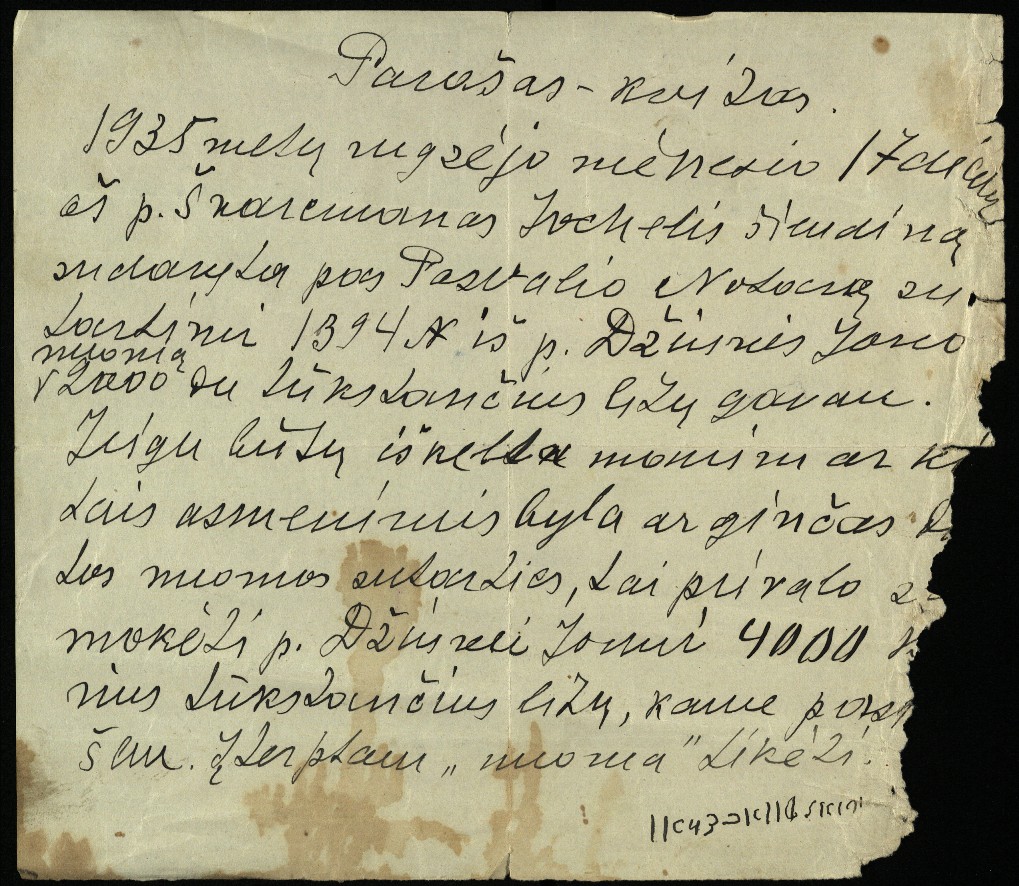 Parašas-kvitas.
1935 metų rugsėjo mėnesio 17 dieną
aš p. Švarcmanas Jochelis šiandiną
sudaryta pas Pasvalio Notarą su-
tartimi 1394 № iš p. Džiuvės Jono
nuomą
√ 2000 du tūkstančius litų gavau.
Jeigu būtų iškelta manimi ar ki
tais asmenimis byla ar ginčas
tos nuomos sutarties, tai privalo
mokėti p. Džiuvei Jonui 4000
rius tūkstančius litų, kame pasi
šau. Įterptam „nuoma" tikėti.